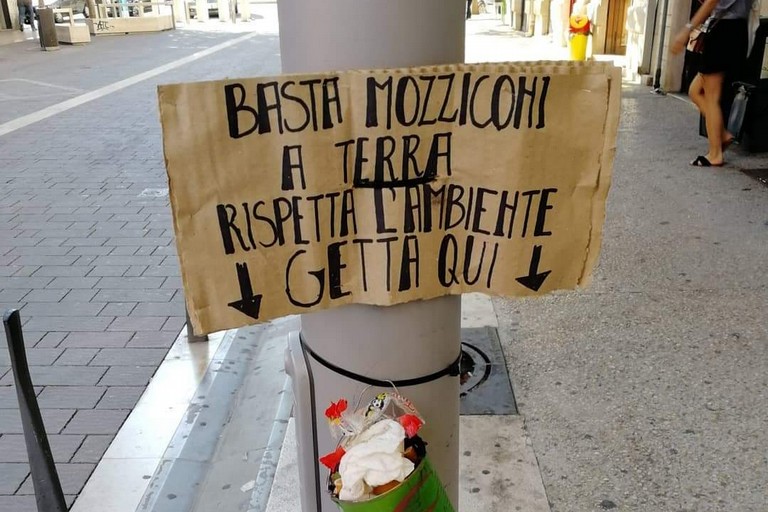 BASTA MOZZICONI
A TERRA
RISPETTA L'AMBIENTE
GETTA QUI